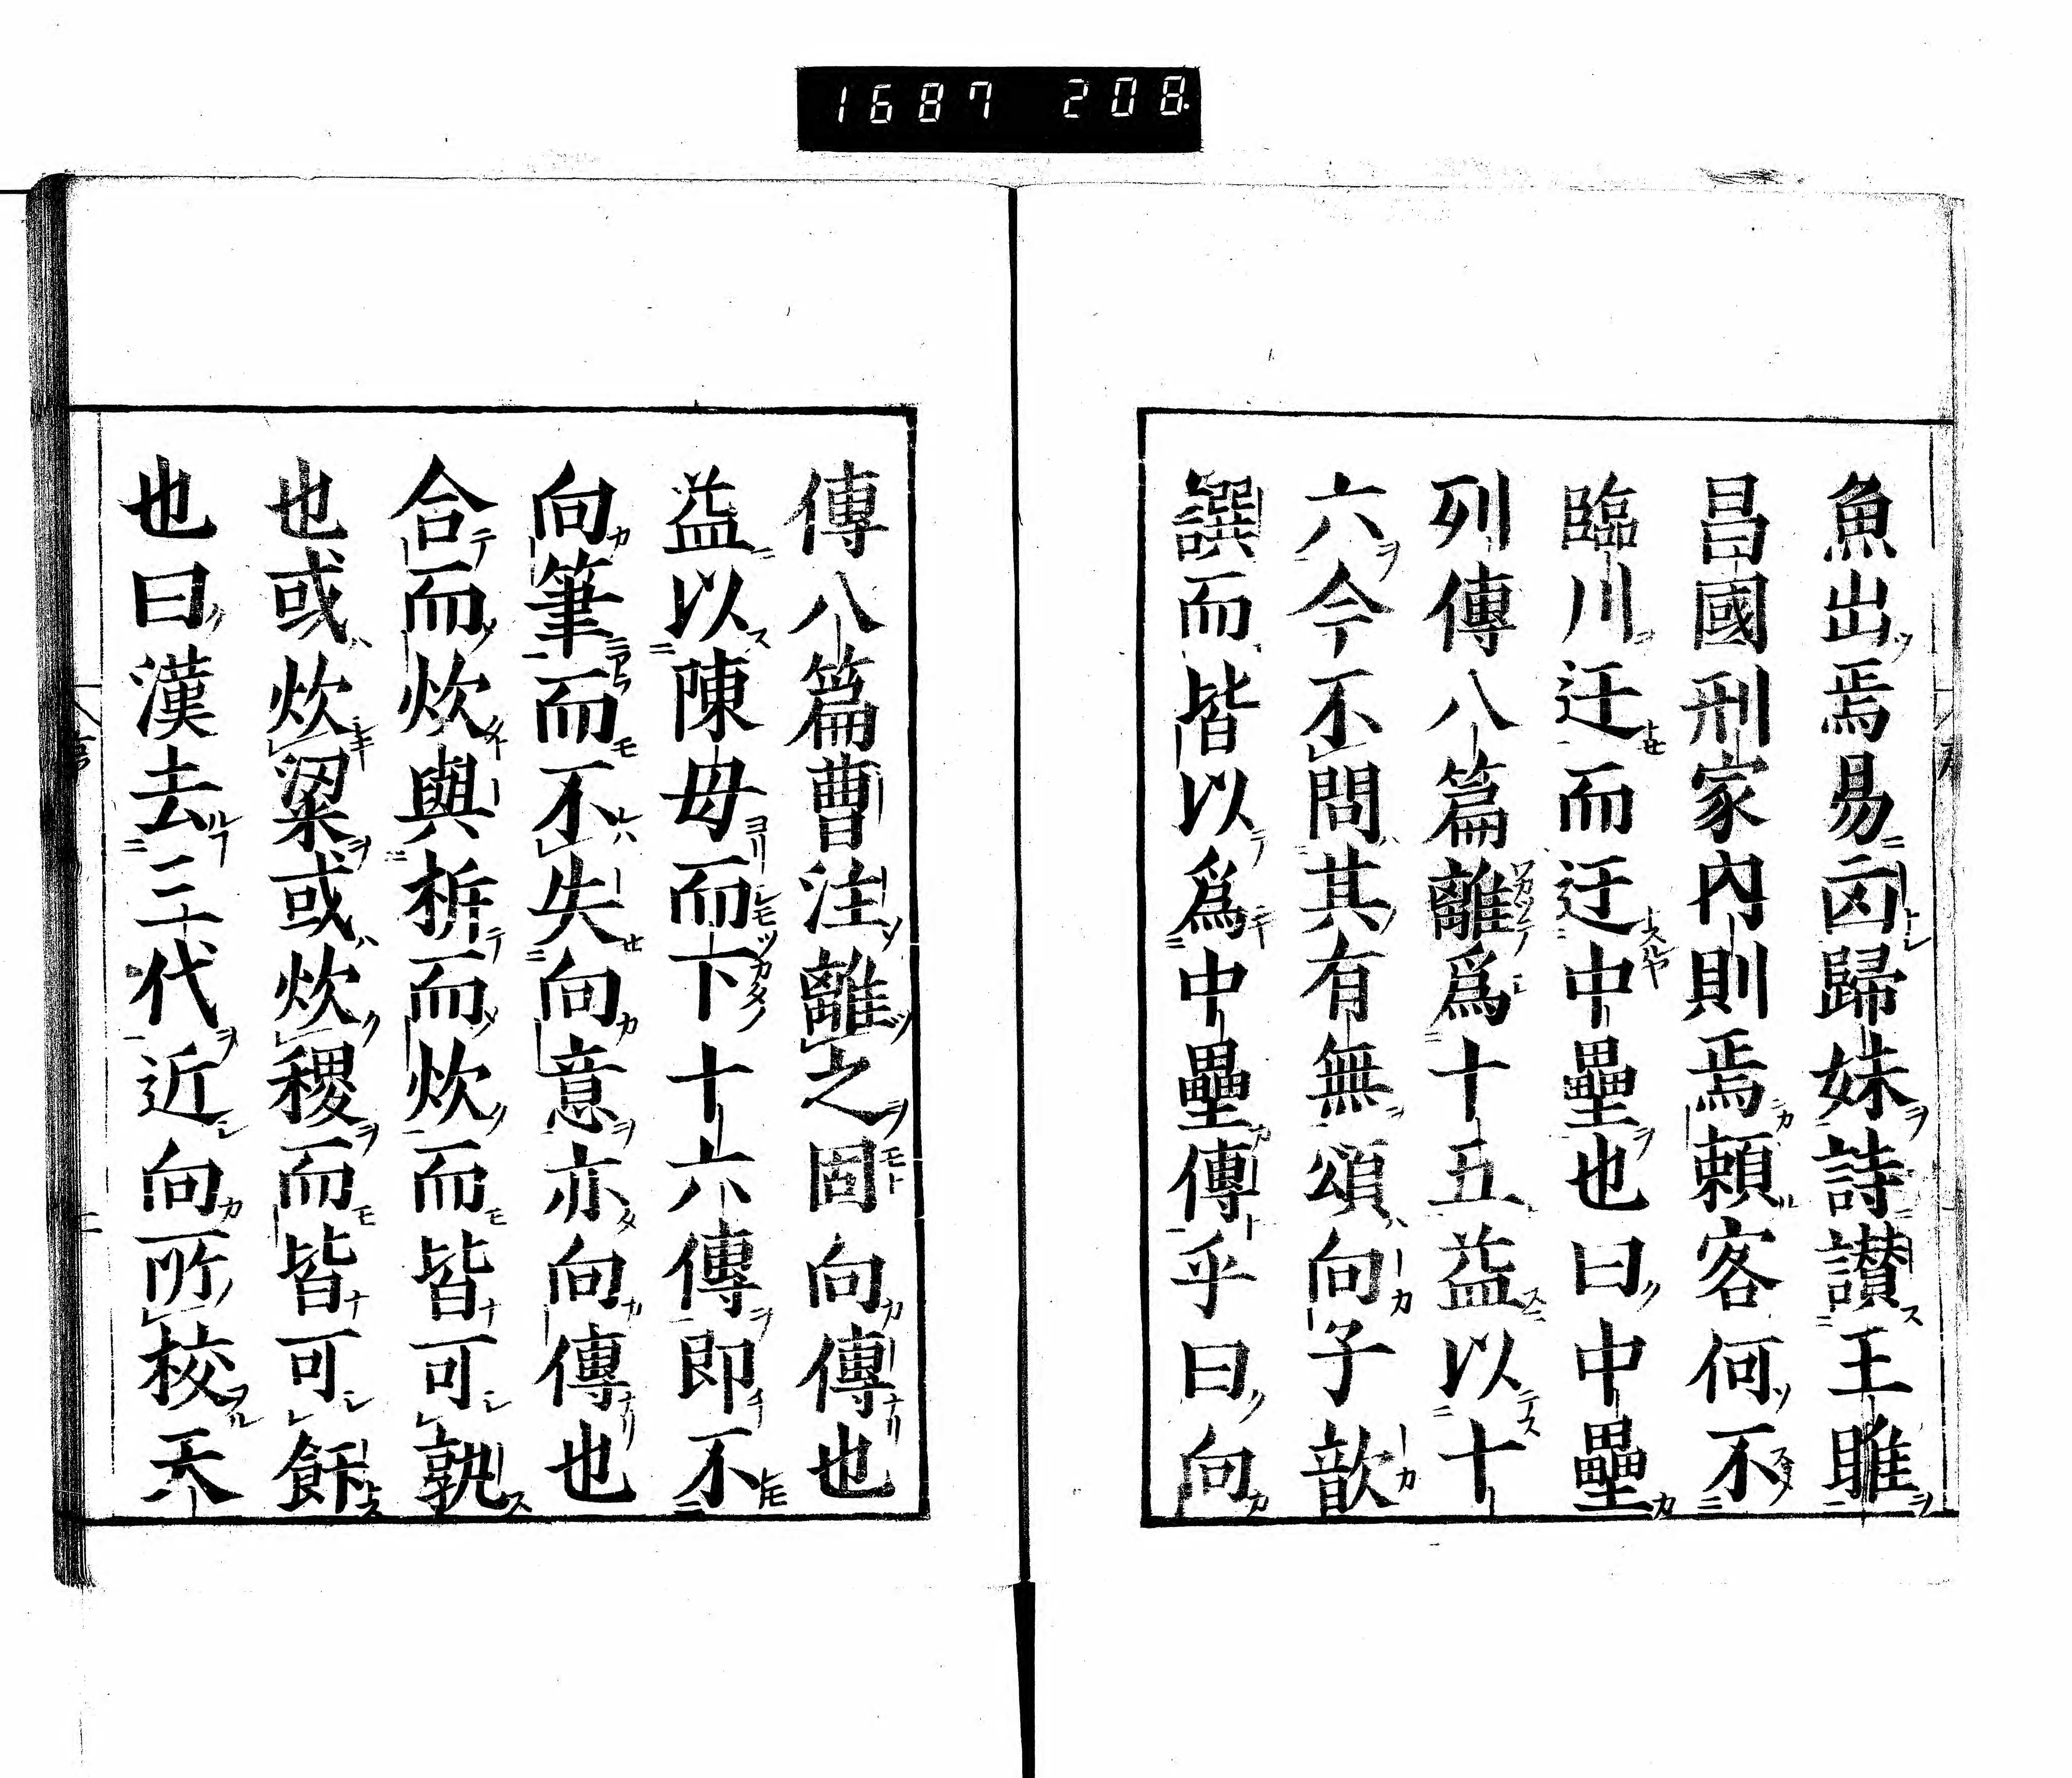 1687 208
魚出焉易凶歸妹詩讃王雎
昌國刑家内則焉頼客何不
臨川迂而迂中壘也曰中壘
列傳八篇離爲十五益以十
六今不問其有無頌向子歆
譔而皆以爲中壘傳乎曰向
傳八篇曹注離之固向傳也
益以陳毋而下十六傳即不
向筆而不失向意亦向傳也
合而炊與析而炊而皆可孰
也或炊粱或炊稷而皆可餁
也曰漢去三代近向所校天